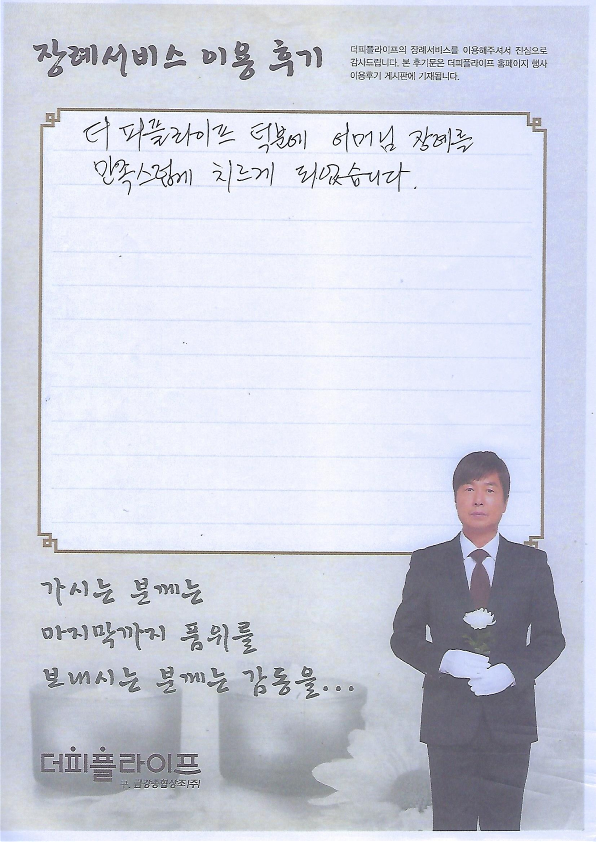 장례서비스 이용 후기
더피플라이프의 장례서비스를 이용해주셔서 진심으로
감사드립니다. 본 후기문은 더피플라이프 홈페이지 행사
이용후기 게시판에 기재됩니다.
더 피플라이프 덕분에 어머님 장례를
만족스럽게 치르게 되었습니다.
가시는 분께는
마지막까지 품위를
보내시는 분께는 감동을...
더피플라이프
구. 금강종합상조(주)